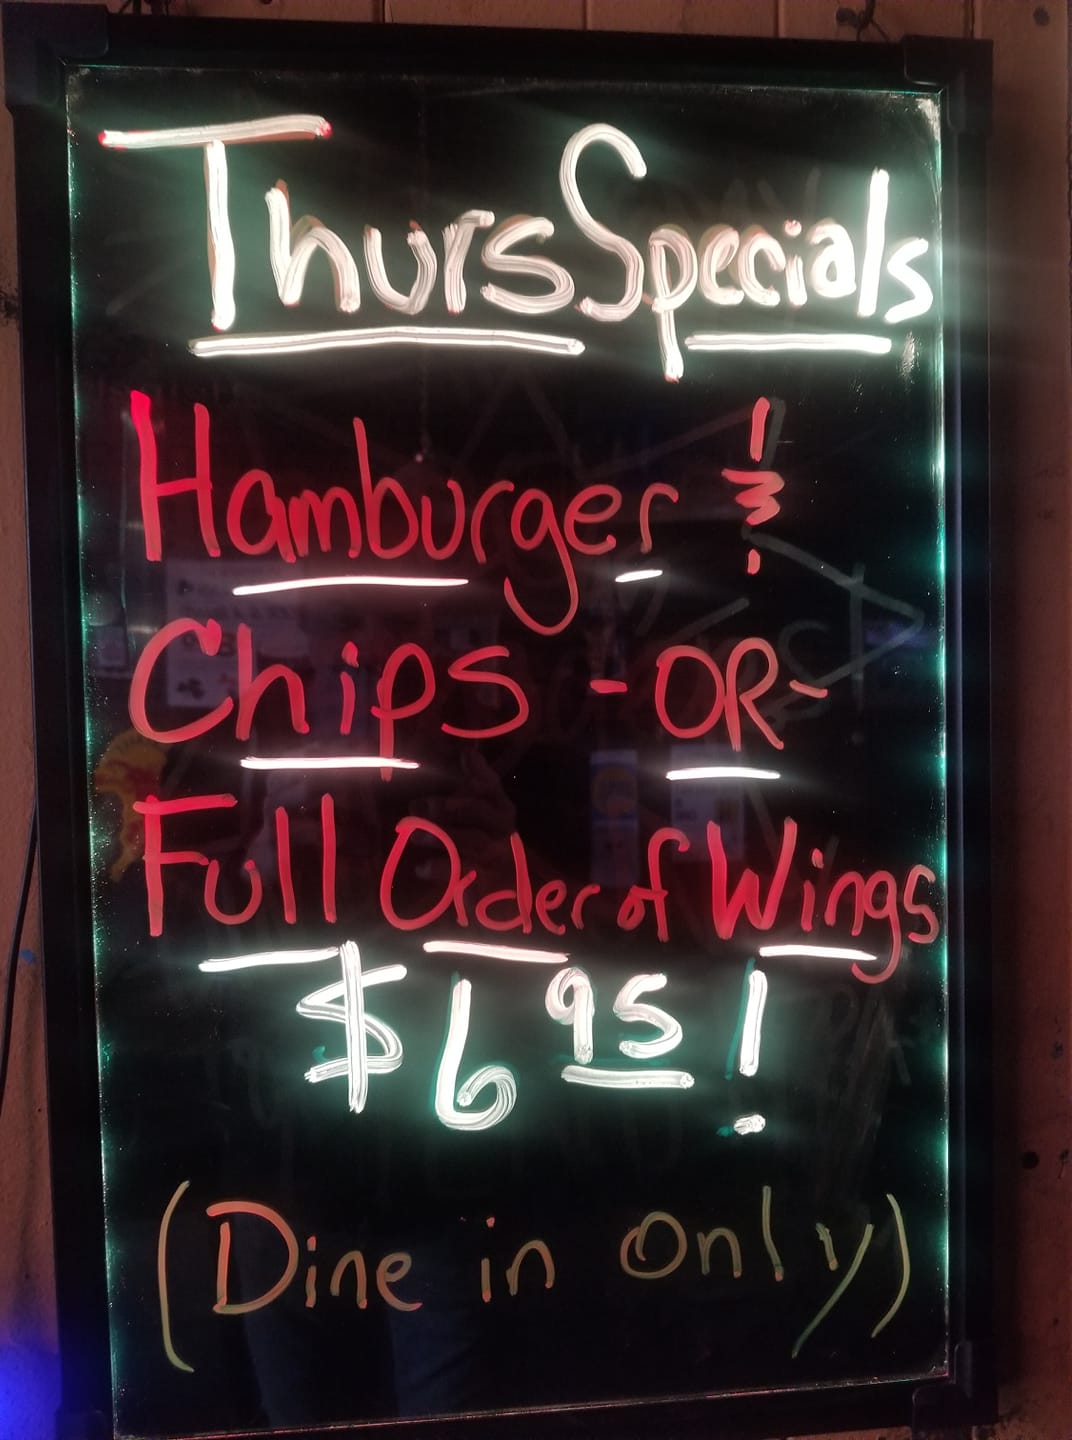 Thurs Specials
Hamburger &
Chips -OR-
Full Order of Wings
$6 95!
(Dine in only)